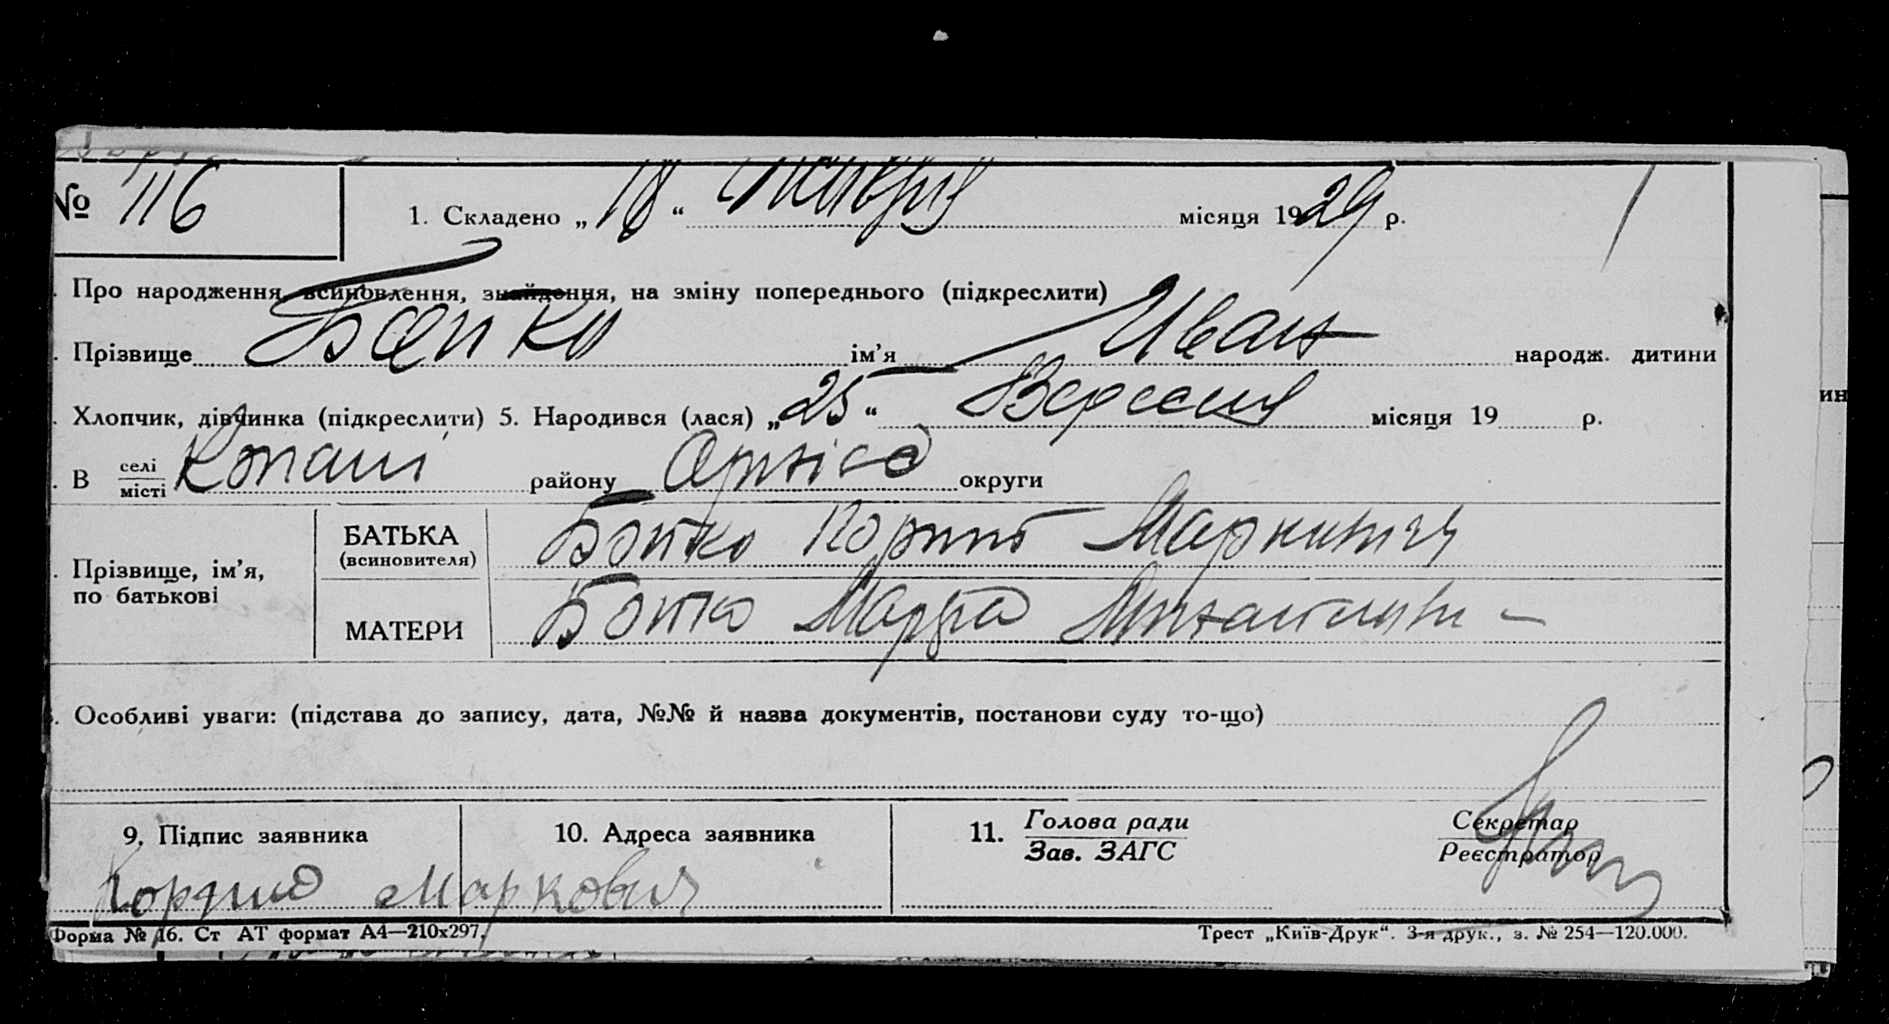 № 116
1. Складено „18“ октября місяця 1929 р.
Про народження, всиновлення, знайдення, на зміну попереднього (підкреслити)
Прізвище Бойко ім’я Иван народж. дитини
Хлопчик, дівчинка (підкреслити) 5. Народився (лася) „25“ Вересня місяця 19 р.
В селі
місті Копані району округи
Прізвище, ім’я,
по батькові
БАТЬКА
(всиновителя)
Бойко Маркович
МАТЕРИ
Бойко Марфа
Особливі уваги: (підстава до запису, дата, №№ й назва документів, постанови суду то-що)
9. Підпис заявника
10. Адреса заявника
11. Голова ради
Зав. ЗАГС
Секретар
Реєстратор
Маркович
Форма № 16. Ст АТ формат А4—210х297.
Трест „Київ-Друк“. 3-я друк., з. № 254—120.000.
ин